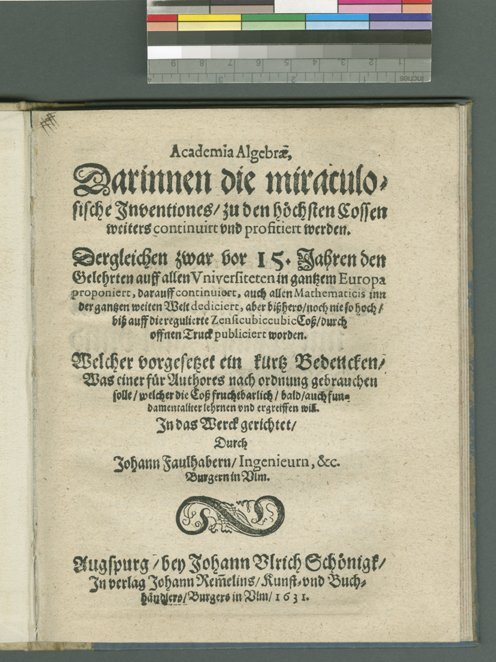 Academia Algebræ,
Darinnen die miraculo⸗
sische Inventiones/ zu den höchsten Cossen
weiters continuirt vnd profitiert werden.
Dergleichen zwar vor 15. Jahren den
Gelehrten auff allen Vniversiteten in gantzem Europa
proponiert, darauff continuiert, auch allen Mathematicis inn
der gantzen weiten Welt dediciert, aber bißhero/ noch nie so hoch/
biß auff die regulierte Zensicubiccubic Coß/ durch
offnen Truck publiciert worden.
Welcher vorgesetzet ein kürtz Bedencken/
Was einer für Authores nach ordnung gebrauchen
solle/ welcher die Coß fruchtbarlich/ bald/ auch fun⸗
damentaliter lehrnen vnd ergreiffen will.
In das Werck gerichtet/
Durch
Johann Faulhabern/ Ingenieurn, &c.
Burgern in Vlm.
Augspurg/ bey Johann Vlrich Schönigk/
In verlag Johann Rem̃elins/ Kunst⸗ vnd Buch⸗
händlers/ Burgers in Vlm/ 1631.